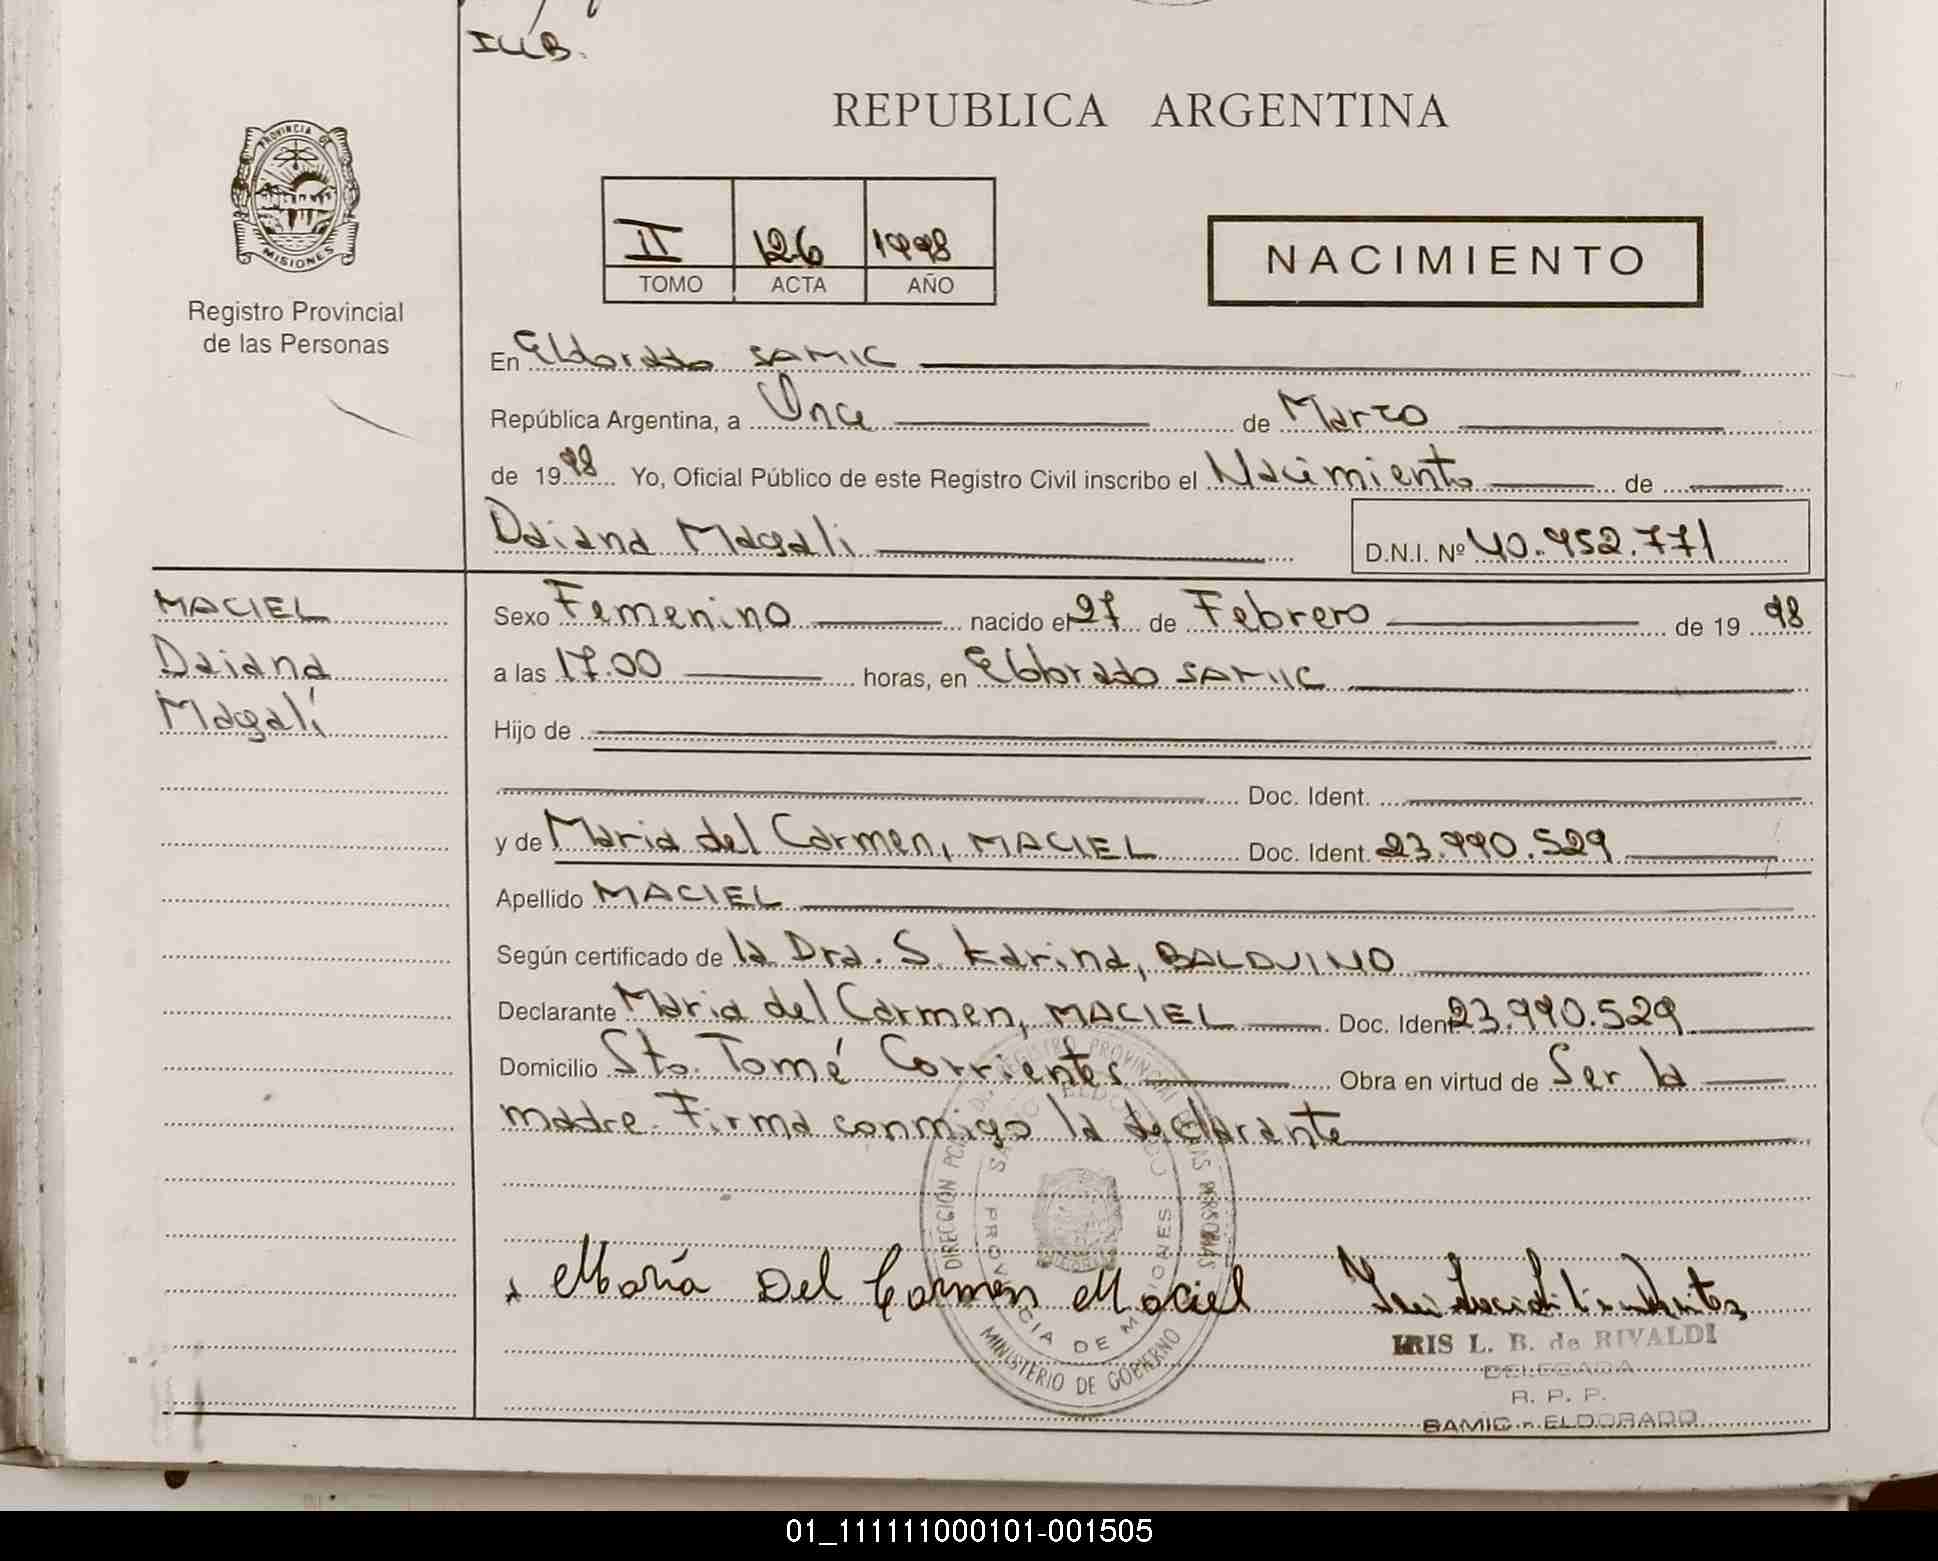 ILLB.
REPUBLICA ARGENTINA
PROVINCIA DE
MISIONES
Registro Provincial
de las Personas
II 126 1998
TOMO ACTA AÑO
NACIMIENTO
En Eldorado SAMIC
República Argentina, a Once de Marzo
de 1998 Yo, Oficial Público de este Registro Civil inscribo el Nacimiento de
Daiana Magali D.N.I. Nº 40.952.771
MACIEL
Daiana
Magalí
Sexo Femenino nacido el 27 de Febrero de 1998
a las 17.00 horas, en Eldorado SAMIC
Hijo de
Doc. Ident.
y de Maria del Carmen, MACIEL Doc. Ident. 23.990.529
Apellido MACIEL
Según certificado de la Dra. S. Karina, BALDUINO
Declarante Maria del Carmen, MACIEL Doc. Ident 23.990.529
Domicilio Sto. Tomé Corrientes Obra en virtud de Ser la
madre. Firma conmigo la declarante
María Del Carmen Maciel
DIRECCIÓN PCIAL DEL REGISTRO PROVINCIAL DE LAS PERSONAS
SAMIC ELDORADO
PROVINCIA DE MISIONES
MINISTERIO DE GOBIERNO
IRIS L. B. de RIVALDI
DELEGADA
R. P. P.
SAMIC - ELDORADO
01_111111000101-001505